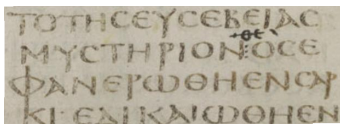 ΤΟΤΗСΕΥСΕΒΕΙΑС
ΜΥСΤΗΡΙΟΝΟСΕ
ΦΑΝΕΡΩΘΗΕΝСΑΡ
ΚΙ·ΕΔΙΚΑΙΩΘΗΕΝ